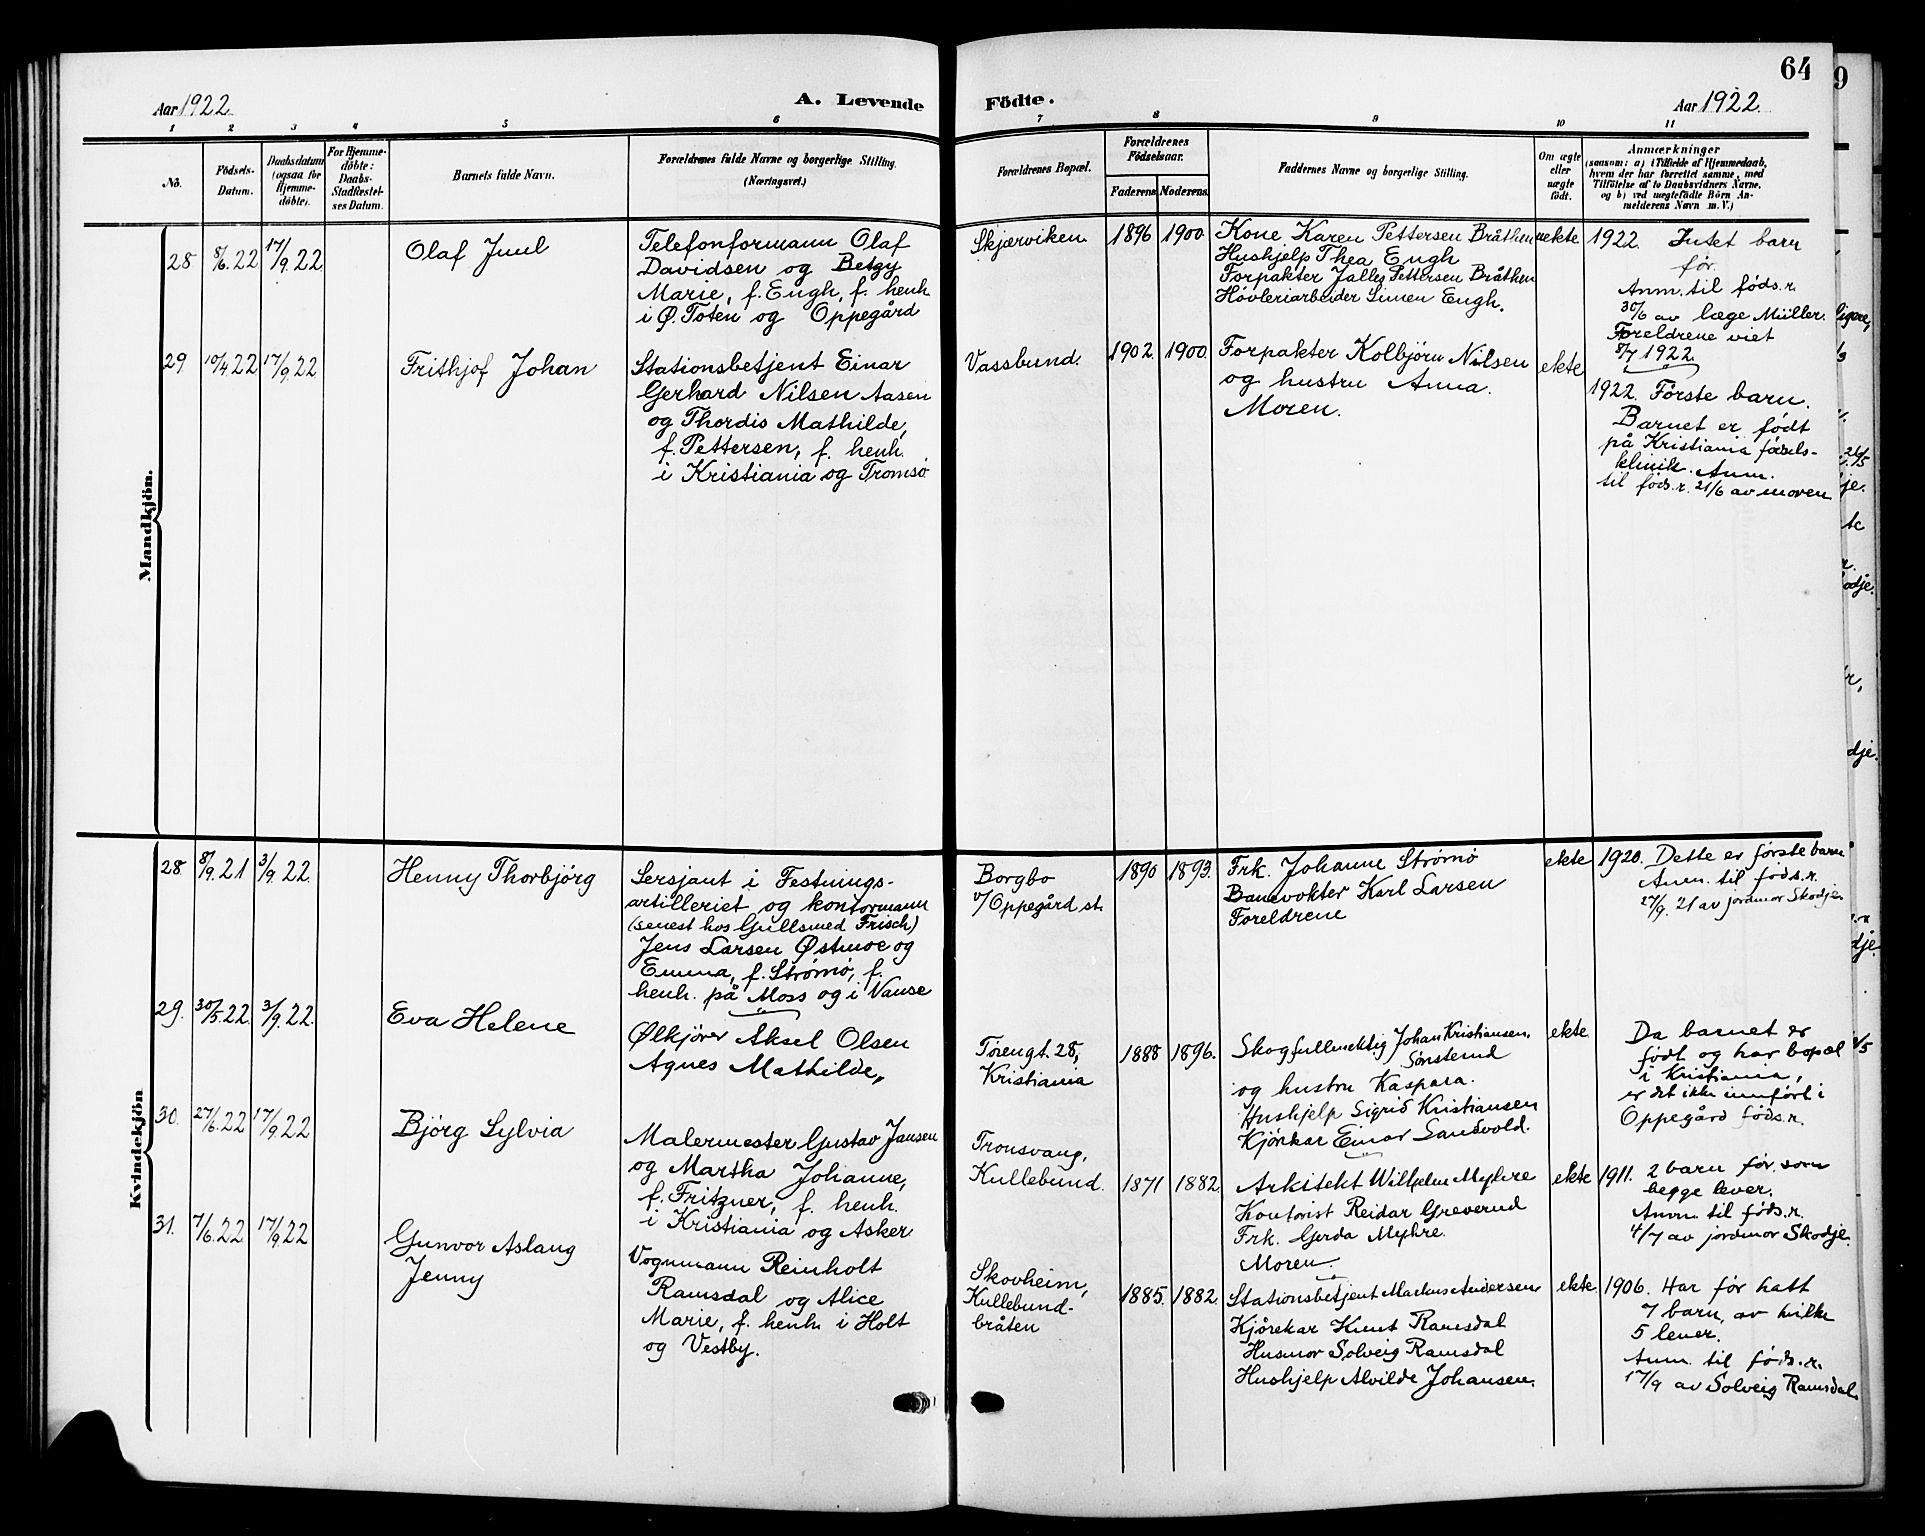 64
Aar 1922
A. Levende
Födte.
Aar 1922
1 2 3 4 5 6 7 8 9 10 11
No.
Födsels-
Datum.
Daabsdatum
(ogsaa for
Hjemme-
döbte).
For Hjemme-
döbte:
Daabs-
Stadfæstel-
ses Datum.
Barnets fulde Navn.
Forældrenes fulde Navne og borgerlige Stilling.
(Næringsvei.)
Forældrenes Bopæl.
Forældrenes
Födselsaar.
Faderens Moderens.
Faddernes Navne og borgerlige Stilling.
Om ægte
eller
uægte
født.
Anmærkninger
(saasom: a) i Tilfælde af Hjemmedaab,
hvem der har forrettet samme, med
Tilföielse af to Daabsvidners Navne,
og b) ved uægtefödte Börn An-
melderens Navn m. V.)
Mandkjön.
28 8/6.22 17/9.22
Olaf Juul
Telefonformann Olaf
Davidsen og Betzy
Marie, f. Engh, f. henh.
i Ø. Toten og Oppegård
Skjærviken
1896 1900
Kone Karen Pettersen Bråthen
Hushjelp Thea Engh
Forpakter Jalles Pettersen Bråthen
Høvleriarbeider Simen Engh.
uekte
1922. Intet barn
før.
Anm. til føds.r.
30/6 av læge Müller.
Foreldrene viet
8/7 1922
29 10/4.22 17/9.22
Frithjof Johan
Stationsbetjent Einar
Gerhard Nilsen Aasen
og Thordis Mathilde,
f. Pettersen, f. henh.
i Kristiania og Tromsö
Vassbund.
1902. 1900.
Forpakter Kolbjörn Nilsen
og hustru Anna.
Moren.
ekte
1922. Förste barn.
Barnet er födt
på Kristiania födsels-
klinik. Anm.
til føds.r. 21/6 av moren
Kvindekjön
28 8/9.21 3/9.22.
Henny Thorbjörg
Sersjant i Festnings-
artilleriet og kontormann
(senest hos Gullsmed Frisch)
Jens Larsen Østmoe og
Emma, f. Strømø, f.
henh. på Moss og i Vanse
Borgbo
v/Oppegård st.
1890 1893.
Frk. Johanne Strømø
Banevokter Karl Larsen
Foreldrene
ekte
1920. Dette er første barn
Anm. til føds.r.
27/9. 21 av jordmor Skodje
29. 30/5.22 3/9.22.
Eva Helene
Ølkjörer Aksel Olsen
Agnes Mathilde,
Törengt. 28,
Kristiania
1888 1896.
Skogfullmektig Johan Kristiansen.
Sønsterud
og hustru Kaspara.
Hushjelp Sigrid Kristiansen
Kjörekar Einar Sandvold.
ekte
Da barnet er
født og har bopæl
i Kristiania,
er det ikke innført i
Oppegård føds.r.
30. 27/6.22 17/9.22
Björg Sylvia
Malermester Gustav Jansen
og Martha Johanne,
f. Fritzner, f. henh.
i Kristiania og Asker
Tronsvang,
Kullebund.
1871 1882.
Arkitekt Wilhelm Myhre
Kontorist Reidar Greverud
Frk. Gerda Myhre.
Moren.
ekte
1911. 2 barn før, som
begge lever.
Anm. til føds.r.
4/7 av jordmor Skodje.
31. 7/6.22 17/9.22
Gunvor Aslaug
Jenny
Vognmann Reinholt
Ramsdal og Alice
Marie, f. henh. i Holt
og Vestby.
Skovheim,
Kullebund-
bråten
1885. 1882.
Stationsbetjent Markus Andersen
Kjörekar Knut Ramsdal
Husmor Solveig Ramsdal
Hushjelp Alvilde Johansen.
ekte
1906. Har før hatt
7 barn, av hvilke
5 lever.
Anm. til føds.r.
17/9 av Solveig Ramsdal.